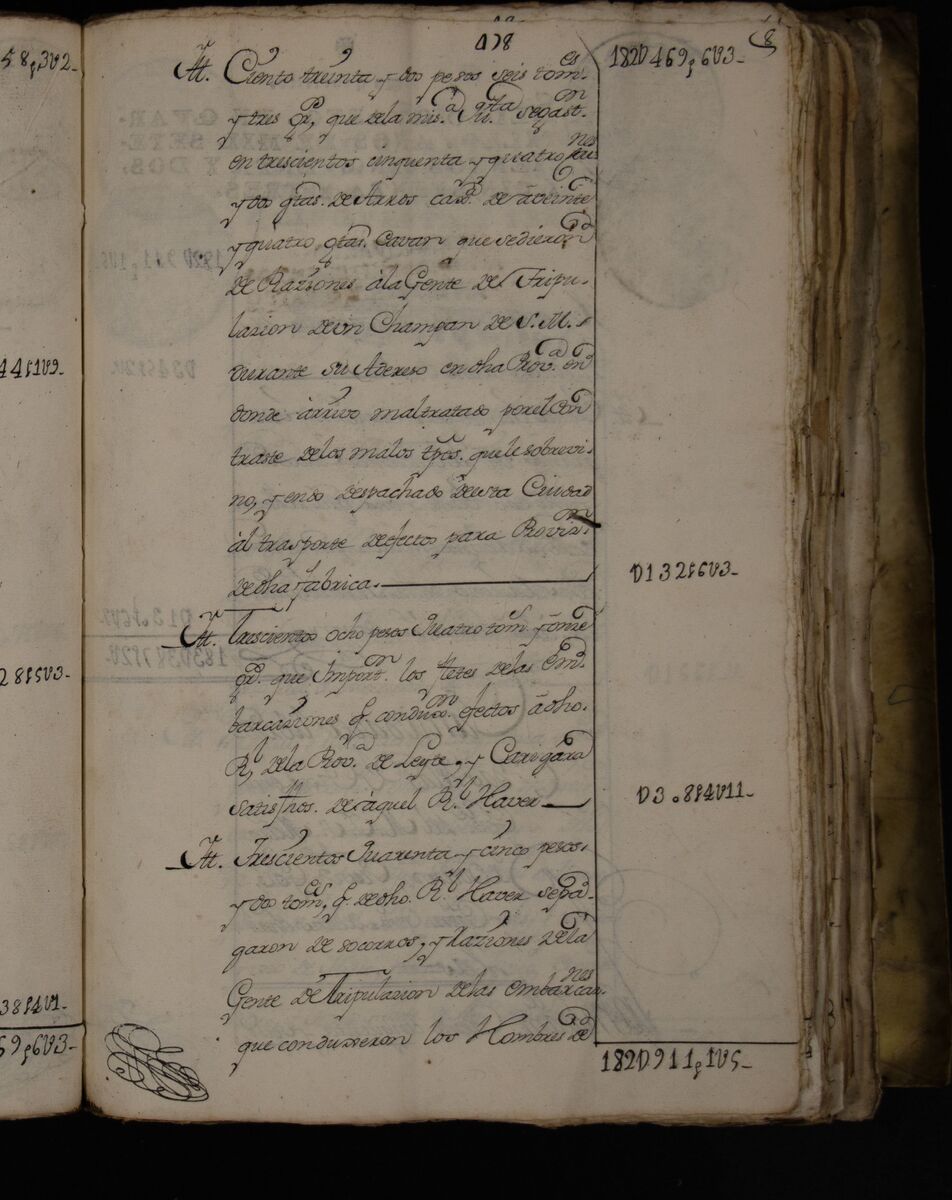 178
8
It. Ciento treinta y dos pesos seis tom.es 182U469p6U3
y tres gr.s que de la mis.a Qta se gast.n
en trescientos cinquenta y quatro cav.nes
y dos gtas. de Arros cad. de â veinte
y quatro gtas. Cavan que se dieron
de Raziones à la Gente de Tripu-
lazion de un Champan de S. M.
durante su Adereso en dha Prov.a en
donde àrrivo maltratado por el Con
traste de los malos tpos. que le sobrevi-
no, yendo despachado de esta Ciudad
àl trasporte de efectos para Provin.n
de dha fabrica. U132p6U3
It. Trescientos ocho pesos Quatro tom.s y onse
gr.s que Import.n los fletes de las Em-
barcaziones q. condux.n efectos â dho.
R.l de la Prov.a de Leyte, y Carigara
satisfhos. de àquel R.l Haver U3o8p4U11
It. Trescientos Quarenta y cinco pesos
y dos tom.es q. de dho. R.l Haver se pa-
garon de socorros, y Raziones de la
Gente de Tripulazion de las embarcan.nes
que conduxeron los Hombres de
182U911p1U5
58p3U2
44p1U9
28p5U3
38p4U1
69p6U3